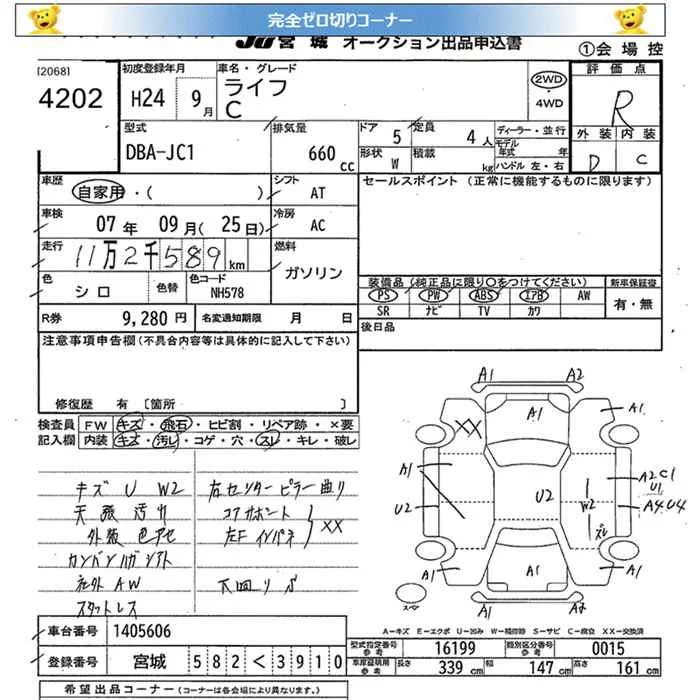 完全ゼロ切りコーナー
JU 宮城 オークション出品申込書
①会場控
[2068]
4202
初度登録年月
H24 9月
車名・グレード
ライフ
C
2WD
4WD
評価点
R
外装 内装
D C
型式
DBA-JC1
排気量
660 cc
ドア 5
定員 4人
形状 W
積載 kg
ディーラー・並行
モデル年式 年
ハンドル 左・右
車歴
自家用・( )
シフト
AT
セールスポイント (正常に機能するものに限ります)
車検
07年 09月(25日)
冷房
AC
走行
11万2千589km
燃料
ガソリン
色
シロ
色替
色コード
NH578
装備品(純正品に限り○をつけてください)
PS PW ABS エアB AW
SR ナビ TV カワ
新車保証書
有・無
R券 9,280円
名変通知期限 月 日
後日品
注意事項申告欄(不具合内容等は具体的に記入して下さい)
修復歴 有 [箇所 ]
検査員記入欄
FW キズ・飛石・ヒビ割・リペア跡・×要
内装 キズ・汚レ・コゲ・穴・スレ・キレ・破レ
キズ U W2
天張汚れ
外装色アセ
社外AW
スタットレス
右センターピラー曲り
コアサポート
左Fインパネ
XX
下回りS
A1 A2
A1
A1
XX
A1
U2
U2
W2
ズレ
A2C1
U1
A4.U4
A1
A1
A1
A1 A2
スペア
A-キズ E-エクボ U-凹み W-補修跡 S-サビ C-腐食 XX-交換済
車台番号 1405606
登録番号 宮城 582<3910
型式指定番号 参考 16199
類別区分番号 参考 0015
車庫証明用 参考 長さ 339cm 幅 147cm 高さ 161cm
希望出品コーナー(コーナーは各会場により異なります。)